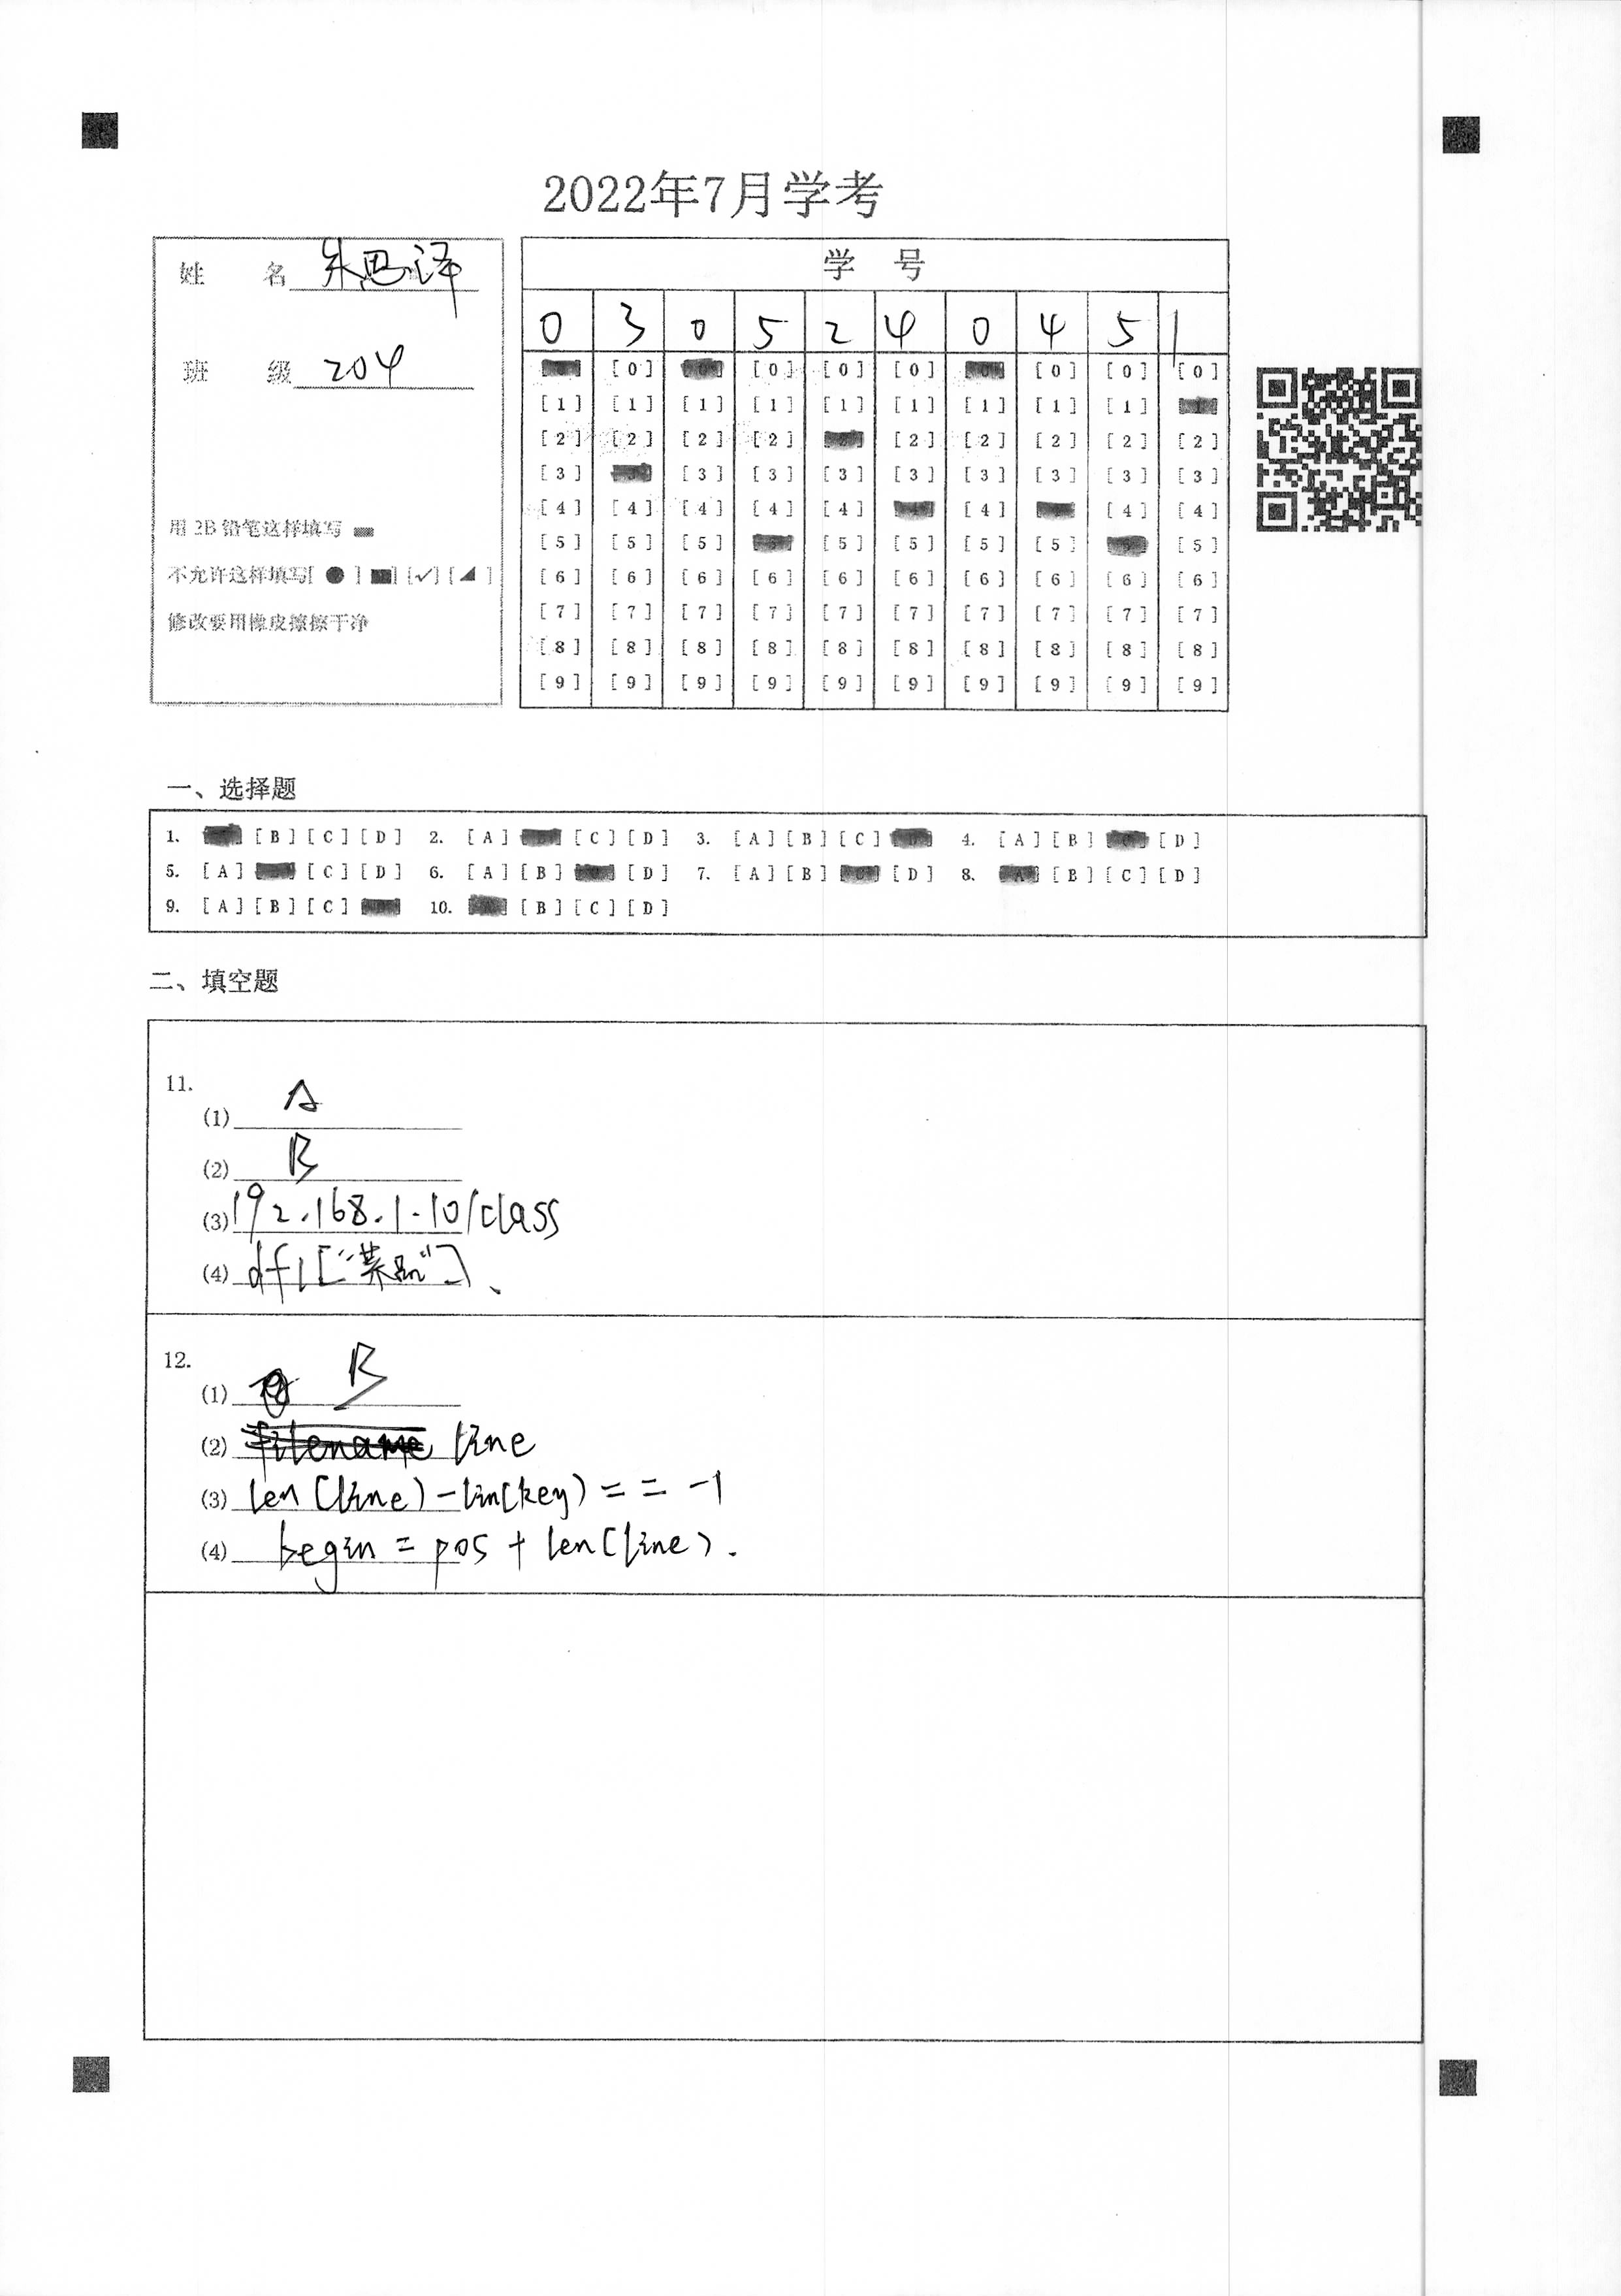 2022年7月学考
姓 名 朱思泽
班 级 204
用 2B 铅笔这样填写
不允许这样填写[ ● ] ■] [✓] [◢ ]
修改要用橡皮擦擦干净
学 号
0 3 0 5 2 4 0 4 5 1
[0] [0] [0] [0] [0] [0] [0]
[1] [1] [1] [1] [1] [1] [1] [1] [1]
[2] [2] [2] [2] [2] [2] [2] [2] [2]
[3] [3] [3] [3] [3] [3] [3] [3] [3]
[4] [4] [4] [4] [4] [4] [4] [4]
[5] [5] [5] [5] [5] [5] [5] [5]
[6] [6] [6] [6] [6] [6] [6] [6] [6] [6]
[7] [7] [7] [7] [7] [7] [7] [7] [7] [7]
[8] [8] [8] [8] [8] [8] [8] [8] [8] [8]
[9] [9] [9] [9] [9] [9] [9] [9] [9] [9]
一、选择题
1. [B] [C] [D] 2. [A] [C] [D] 3. [A] [B] [C] 4. [A] [B] [D]
5. [A] [C] [D] 6. [A] [B] [D] 7. [A] [B] [D] 8. [A] [B] [C] [D]
9. [A] [B] [C] 10. [B] [C] [D]
二、填空题
11.
(1) A
(2) B
(3) 192.168.1.10/class
(4) df1["菜品"]
12.
(1) B
(2) filename line
(3) len(line)-lin(key) == -1
(4) begin = pos + len(line).